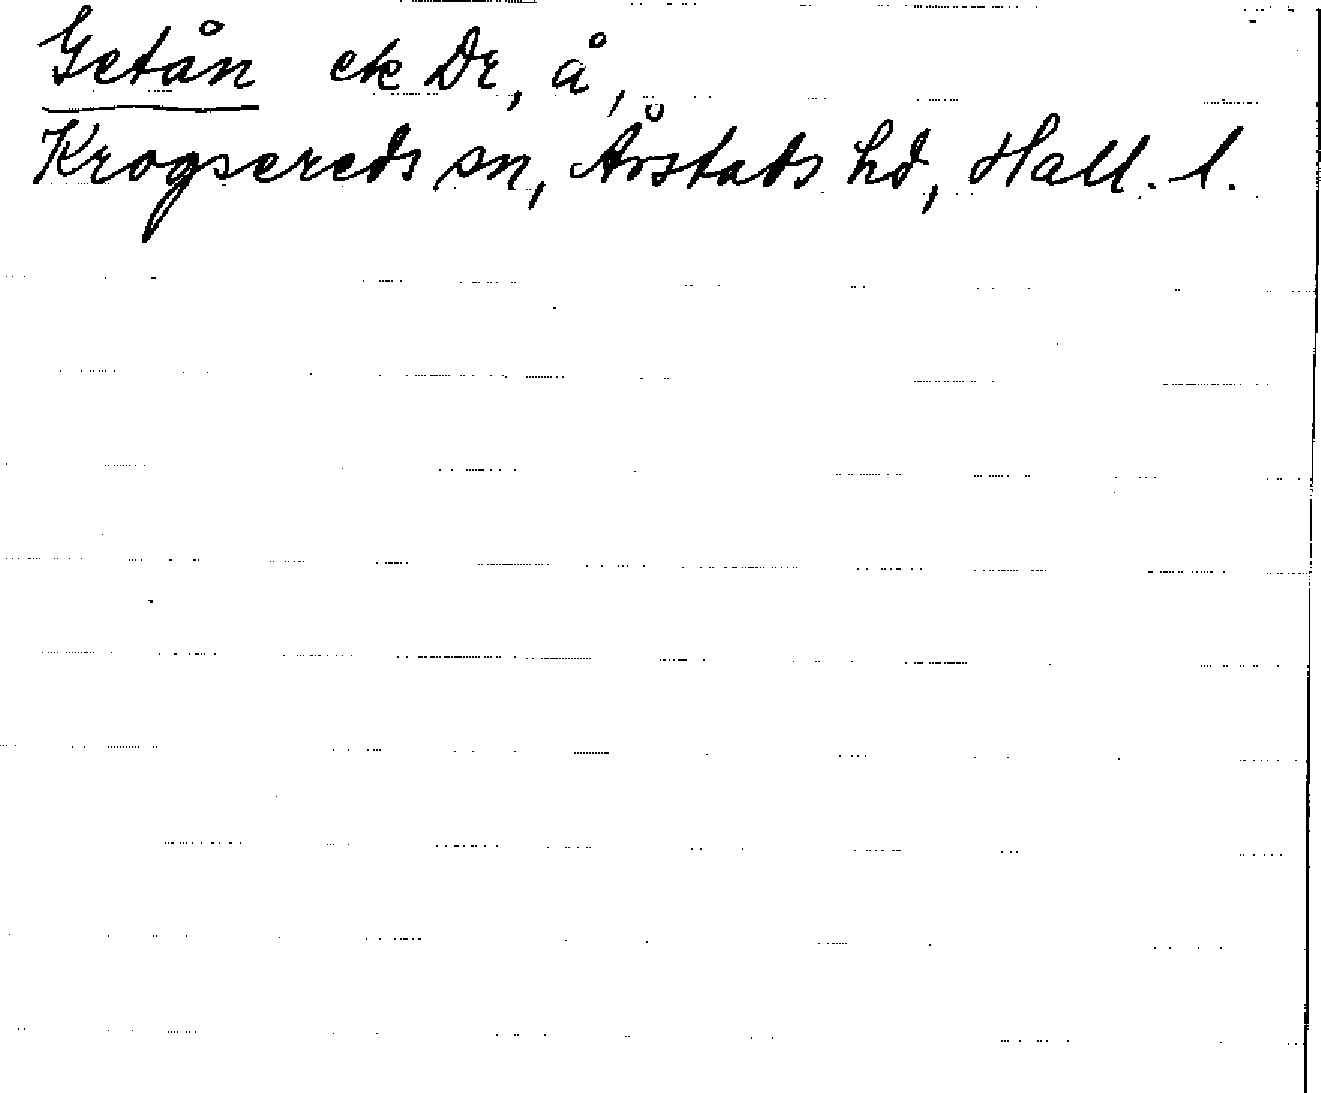 Getån ek Dr, å,
Krogsereds sn, Årstads hd, Hall. l.